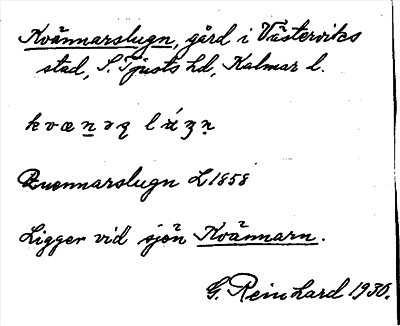 Kvännarslugn, gård i Västerviks
stad, S. Tjusts hd, Kalmar l.
Quennarslugn L 1858
Ligger vid sjön Kvännarn.
G. Reinhard 1930.